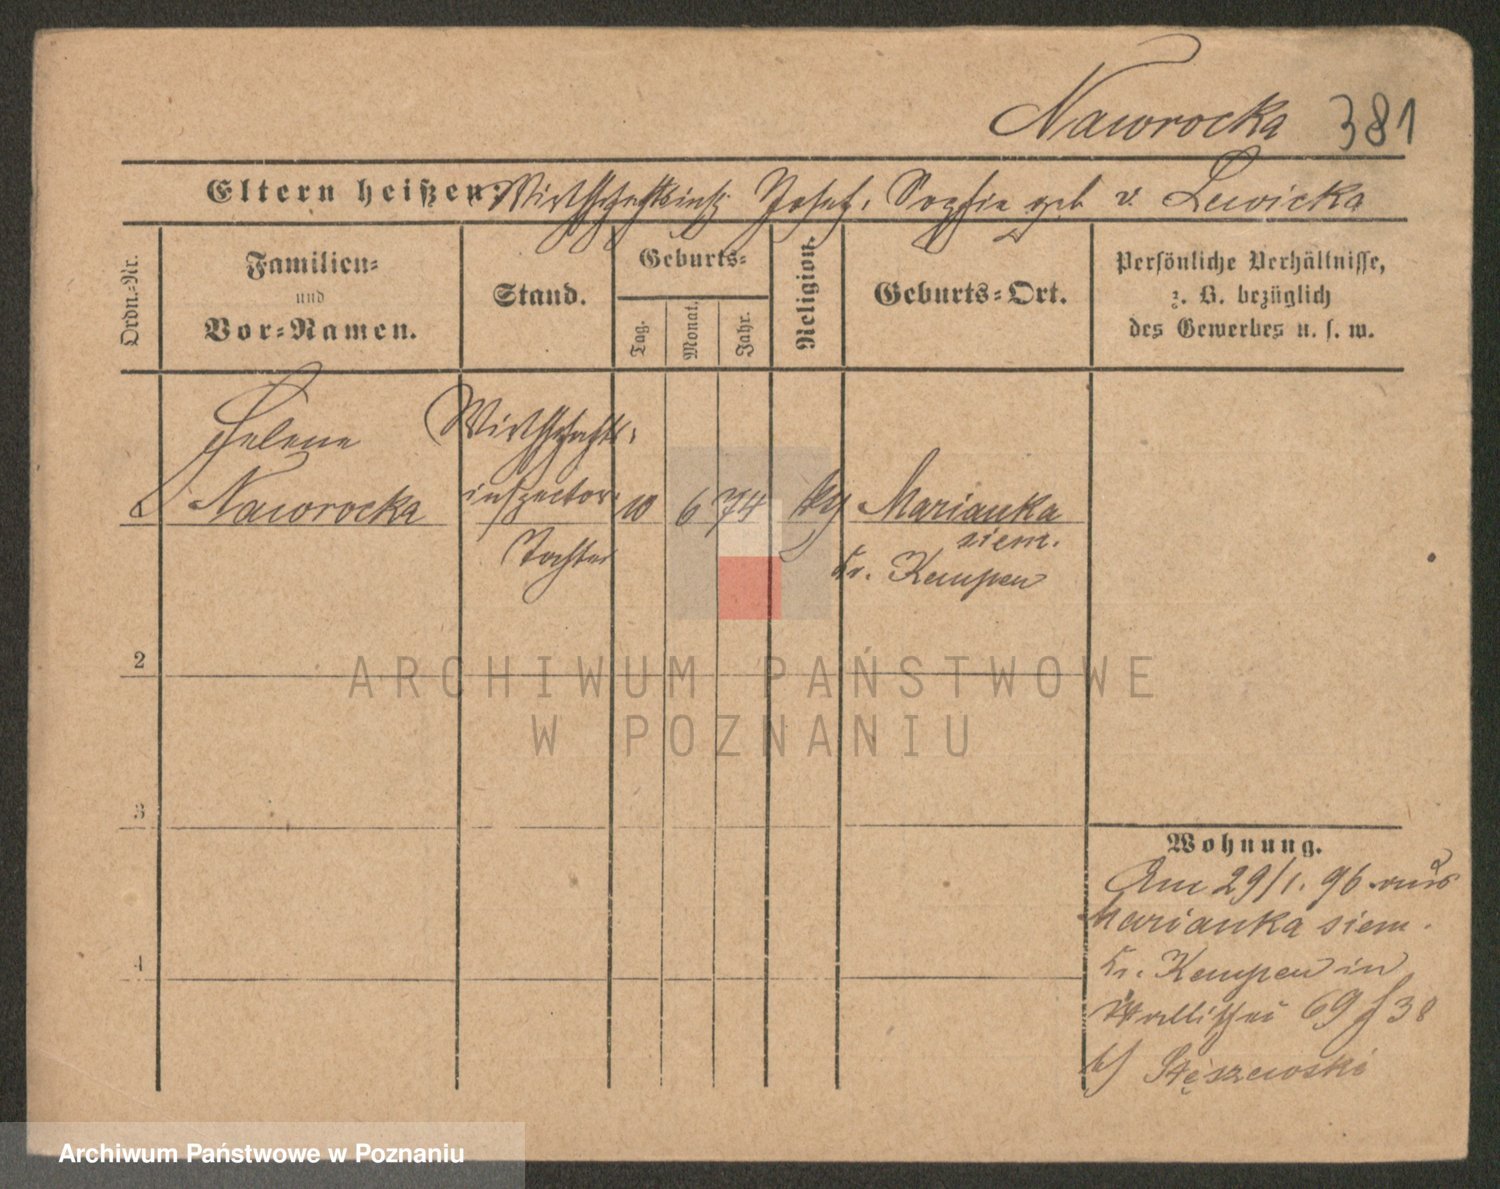 Nawrocka 381
Eltern heißen: Wirthschaftsinsp. Josef, Sophie geb v. Lewicka
Ordn.-Nr.
Familien-
und
Vor-Namen.
Stand.
Geburts-
Tag.
Monat.
Jahr.
Religion.
Geburts-Ort.
Persönliche Verhältnisse,
z. B. bezüglich
des Gewerbes u. s. w.
Helene Wirthschafts-
Nawrocka inspector- 10 6 74 Marianka
Tochter siem.
Kr. Kempen
2
3
4
Wohnung.
Am 29/1. 96 aus
Marianka siem.
Kr. Kempen in
Wallischei 69 38
b/ Stęszewski
ARCHIWUM PAŃSTWOWE
W POZNANIU
Archiwum Państwowe w Poznaniu